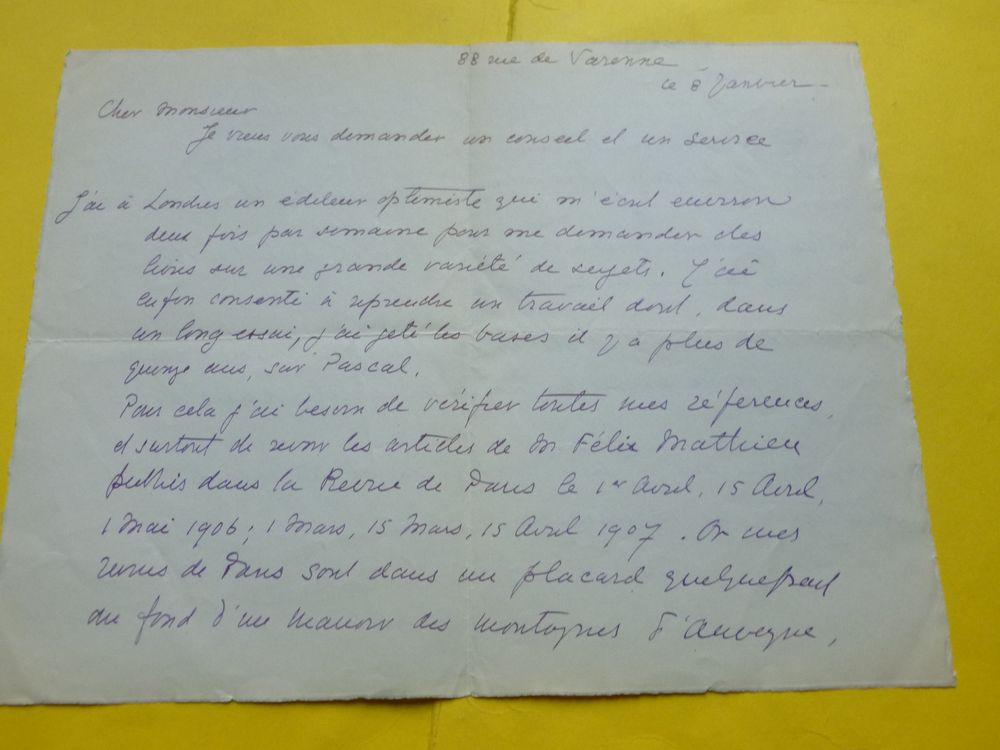 88 rue de Varenne
le 8 Janvier -
Cher Monsieur
Je viens vous demander un conseil et un service
J'ai à Londres un éditeur optimiste qui m'écrit environ
deux fois par semaine pour me demander des
livres sur une grande variété de sujets. J'ai
enfin consenti à reprendre un travail dont, dans
un long essai, j'ai jeté les bases il y a plus de
quinze ans, sur Pascal.
Pour cela j'ai besoin de vérifier toutes mes références,
et surtout de revoir les articles de M Félix Mathieu
publiés dans la Revue de Paris le 1er Avril, 15 Avril,
1 Mai 1906; 1 Mars, 15 Mars, 15 Avril 1907. Or mes
revues de Paris sont dans un placard quelquepart
au fond d'un manoir des montagnes d'Auvergne,